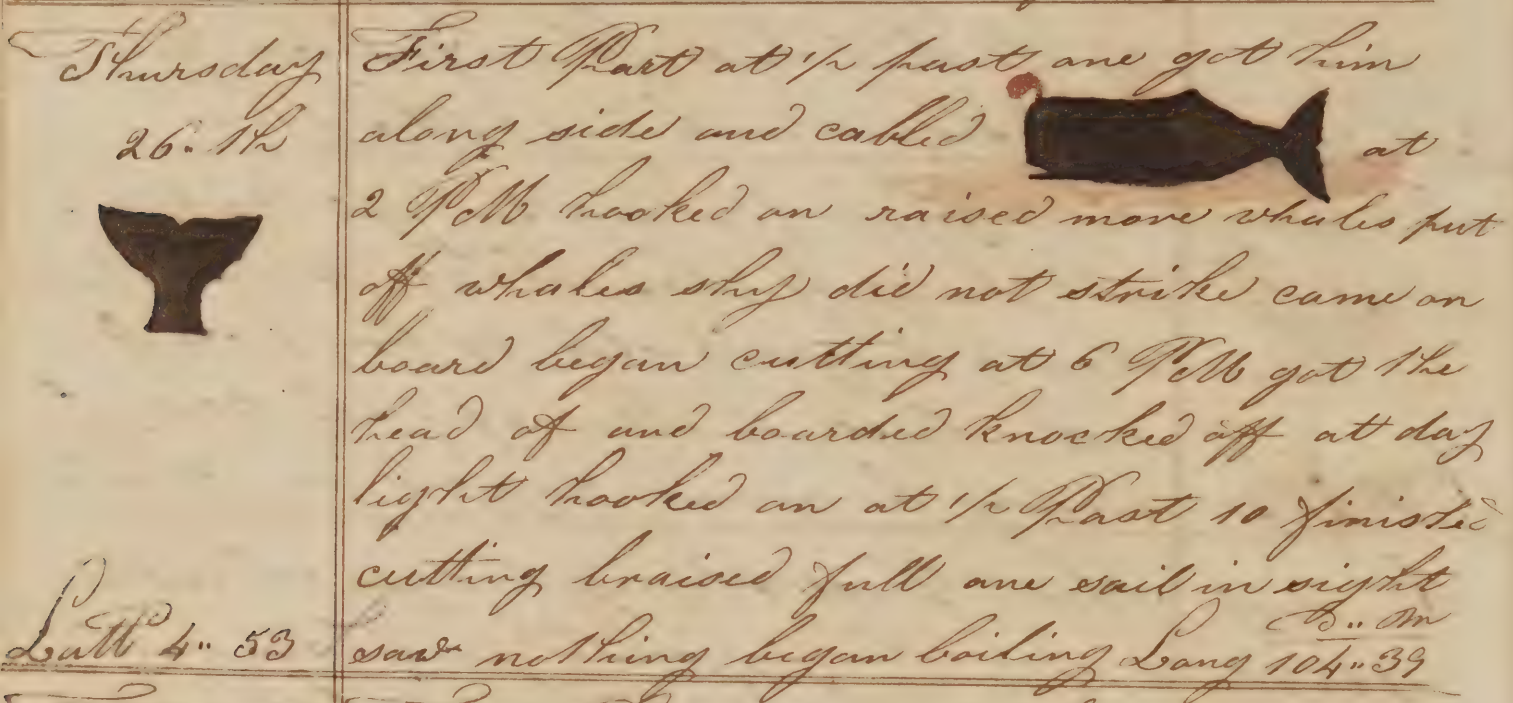 Thursday
26. th
First Part at 1/2 past one got him
along side and cabled at
2 PM hooked on raised more whales put
off whales shy did not strike came on
board began cutting at 6 PM got the
head of and boarded knocked off at day
light hooked on at 1/2 Past 10 finished
cutting braised full one sail in sight
saw nothing began boiling Long 104.. 39
Latt 4.. 53